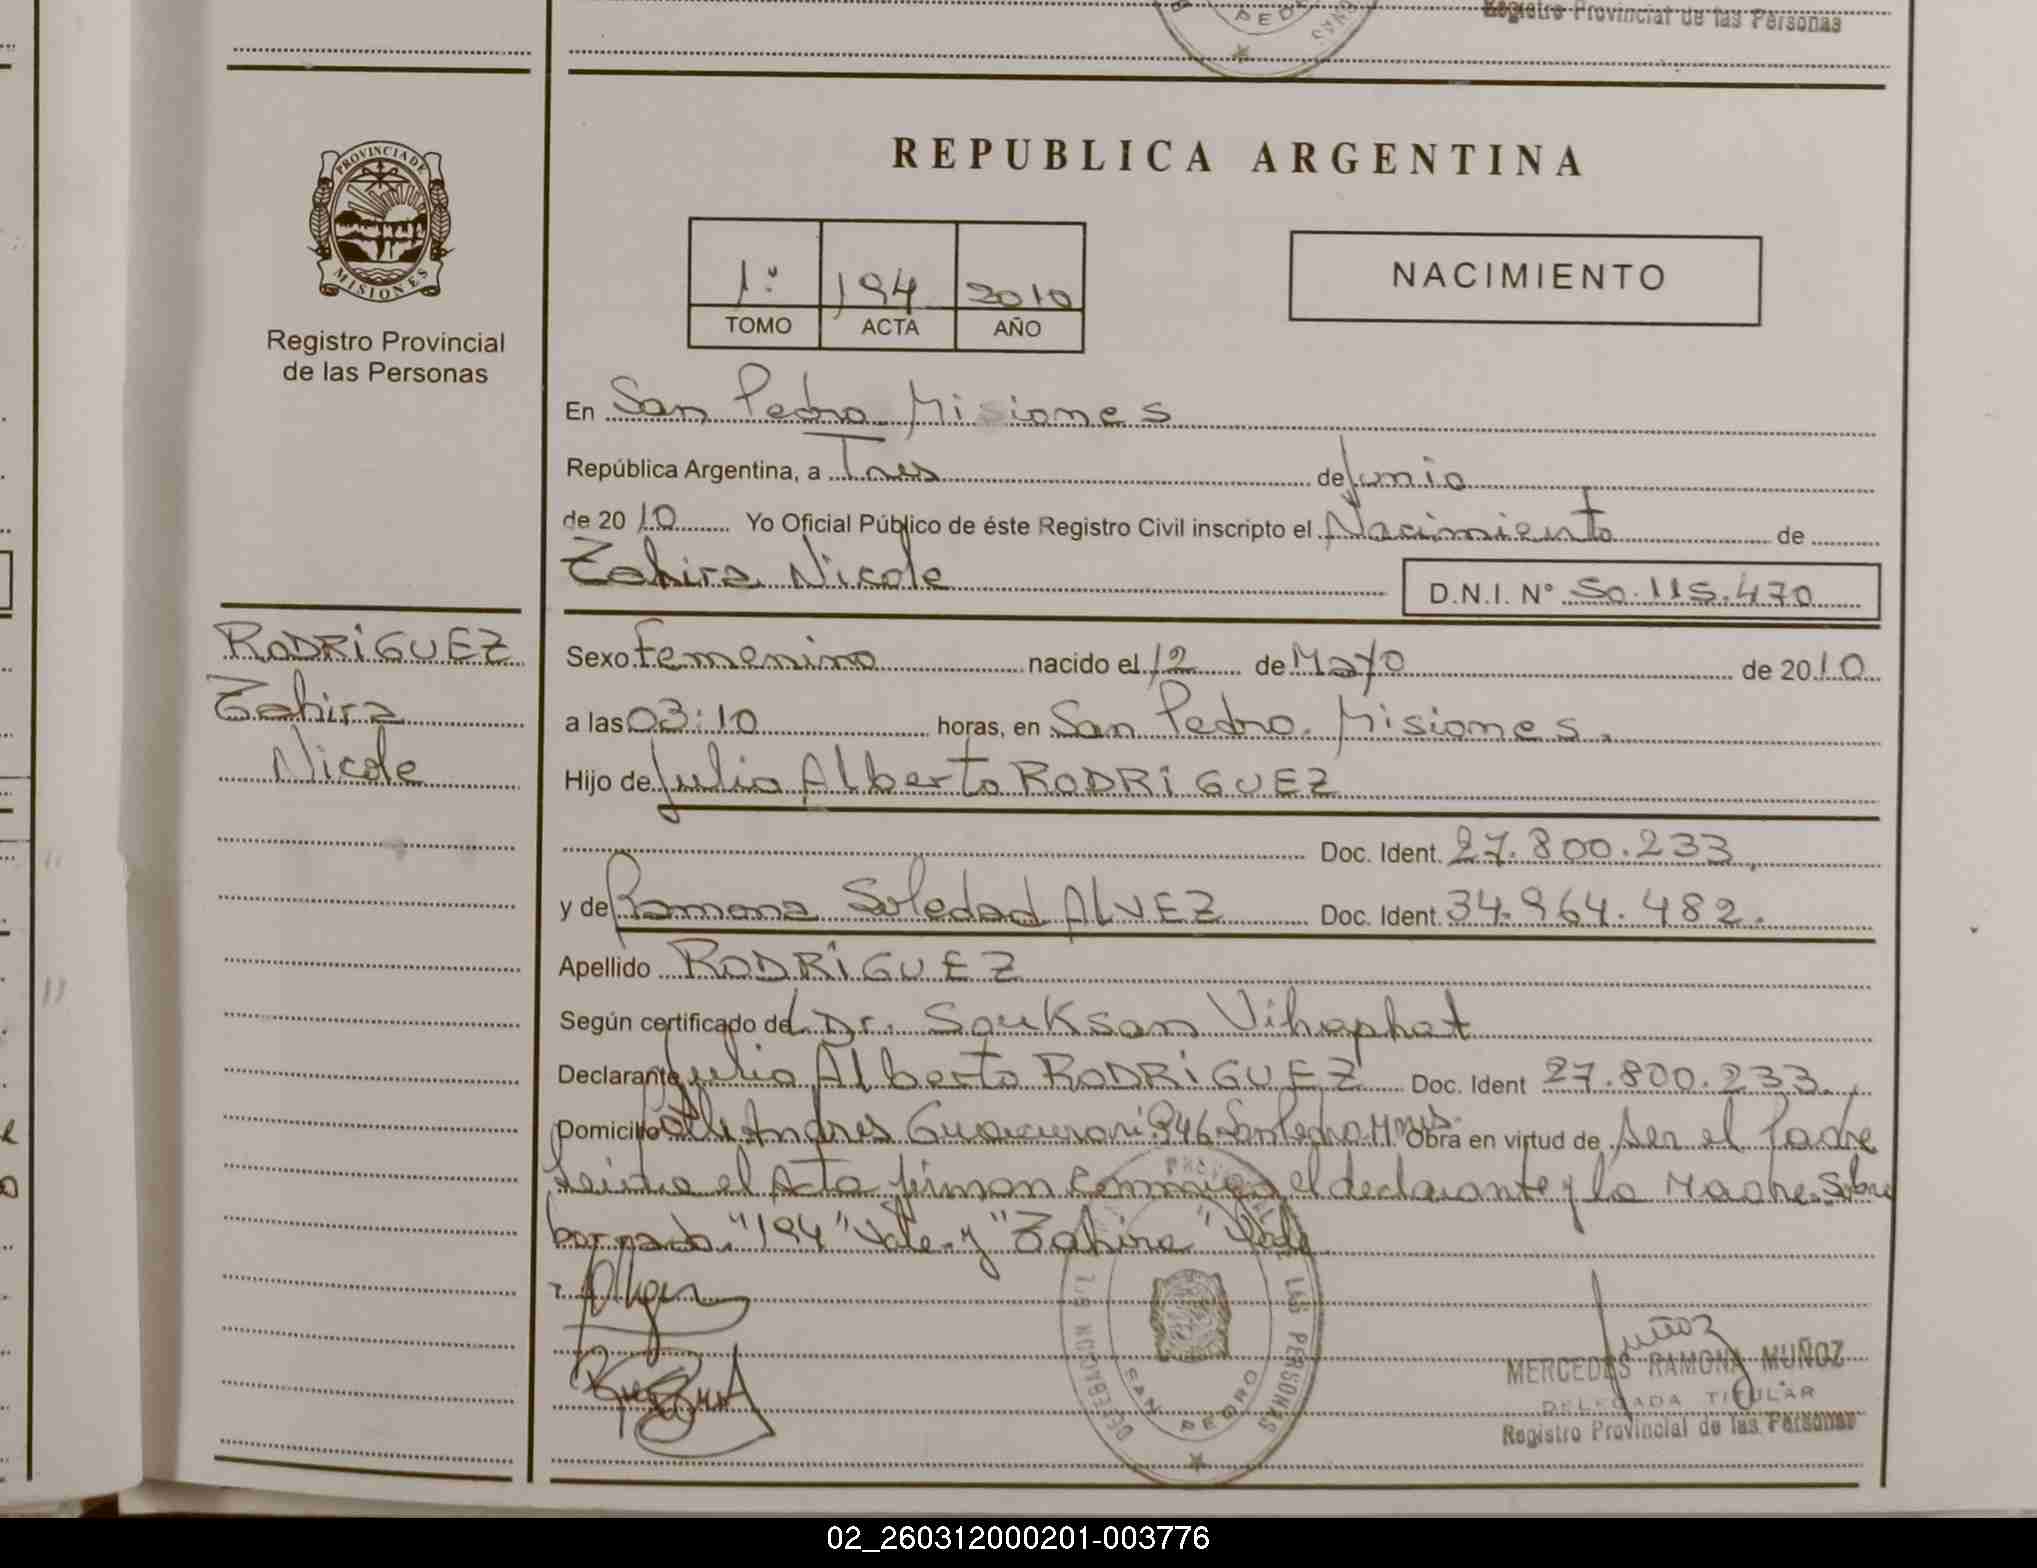 Registro Provincial de las Personas
PROVINCIA DE
MISIONES
Registro Provincial
de las Personas
REPUBLICA ARGENTINA
1º 194 2010
TOMO ACTA AÑO
NACIMIENTO
En San Pedro Misiones
República Argentina, a Tres de Junio
de 2010 Yo Oficial Público de éste Registro Civil inscripto el Nacimiento de
Zahira Nicole
D.N.I. Nº 50.115.470
RODRiGUEZ
Zahira
Nicole
Sexo Femenino nacido el 12 de Mayo de 2010
a las 03:10 horas, en San Pedro. Misiones.
Hijo de Julio Alberto RODRiGUEZ
Doc. Ident. 27.800.233
y de Ramona Soledad ALVEZ Doc. Ident. 34.964.482.
Apellido RODRiGUEZ
Según certificado del Dr. Souksan Vihaphat
Declarante Julio Alberto RODRiGUEZ Doc. Ident 27.800.233.
Domicilio Calle Andres Guacurari 946 San Pedro Mnes. Obra en virtud de Ser el Padre
Leida el Acta firman conmigo el declarante y la Madre. Sobre
borrado "194" Vale. y "Zahira" Vale
LAS PERSONAS
DELEGACION
SAN PEDRO
Muñoz
MERCEDES RAMONA MUÑOZ
DELEGADA TITULAR
Registro Provincial de las Personas
02_260312000201-003776